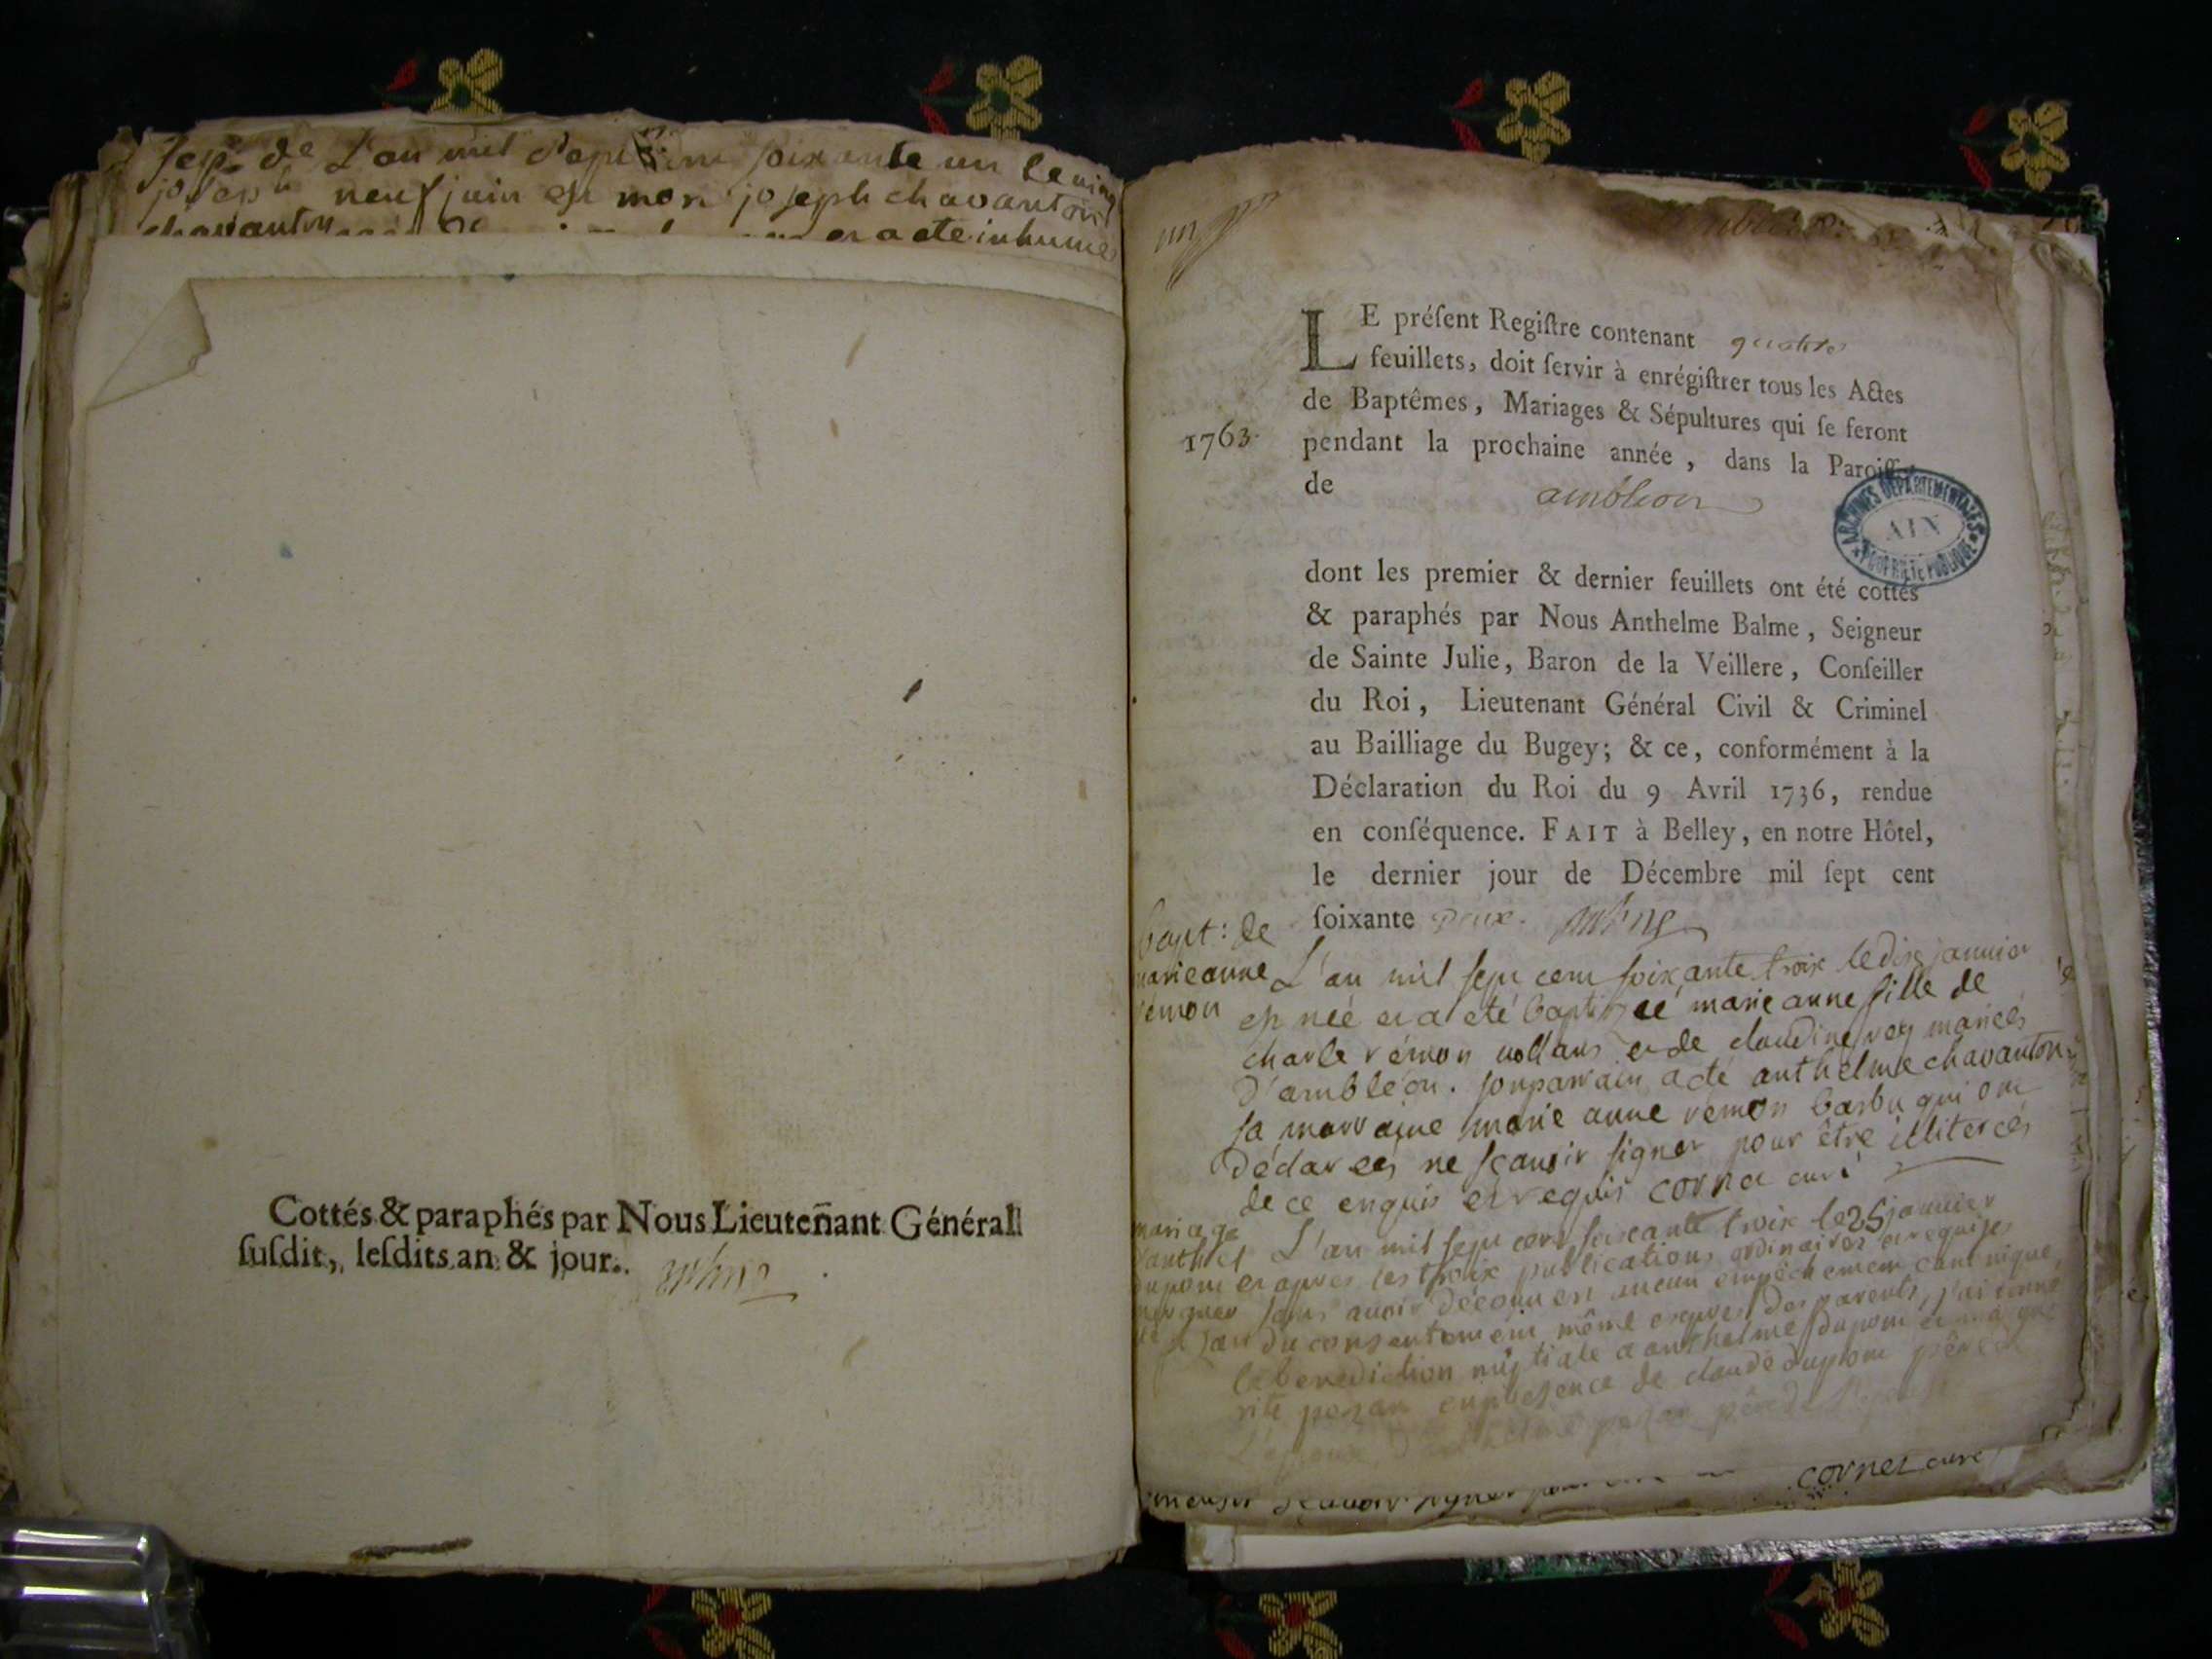 Sep. de L'an mil sept cent soixante un le vingt
joseph neuf juin est mort joseph chavanton
chavanton et a ete inhumé
Cottés & paraphés par Nous Lieuteñant Général
ſuſdit, leſdits an & jour.
un
LE préſent Regiſtre contenant quatre
feuillets, doit ſervir à enrégiſtrer tous les Actes
de Baptêmes, Mariages & Sépultures qui ſe feront
1763.
pendant la prochaine année, dans la Paroiſſe
de ambleon
ARCHIVES DÉPARTEMENTALES
AIN
PROPRIÉTÉ PUBLIQUE
dont les premier & dernier feuillets ont été cottés
& paraphés par Nous Anthelme Balme, Seigneur
de Sainte Julie, Baron de la Veillere, Conſeiller
du Roi, Lieutenant Général Civil & Criminel
au Bailliage du Bugey; & ce, conformément à la
Déclaration du Roi du 9 Avril 1736, rendue
en conſéquence. FAIT à Belley, en notre Hôtel,
le dernier jour de Décembre mil ſept cent
ſoixante deux.
bapt: de
marie anne
rémon
L'an mil sept cent soixante trois le dix janvier
est née et a eté baptizeé marie anne fille de
charle rémon et de claudine rey mariés
d'ambléon. son parrain a eté anthelme chavanton
sa marraine marie anne rémon barbu qui ont
déclareés ne sçavoir signer pour être illiterés
de ce enquis et requis cornet curé
mariage
d'anthel
dupont et
L'an mil sept cent soixante trois le 25 janvier
apres les trois publications ordinaires et requises
sans avoir découvert aucun empêchement canonique
du consentement même exprés des parents, j'ai donné
la benediction nuptiale a anthelme dupont et margue
rite pezan en presence de claude dupont pére de
l'epoux
cornet curé